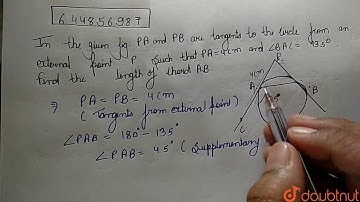 644856987
In the given fig. PA and PB are tangents to the circle from an
external point P such that PA = 4cm and ∠BAC = 135°.
find the length of chord AB.
⇒ PA = PB = 4cm
( Tangents from external point )
∠PAB = 180° - 135°
∠PAB = 45° ( Supplementary
P
4cm
A
B
C
doubtnut